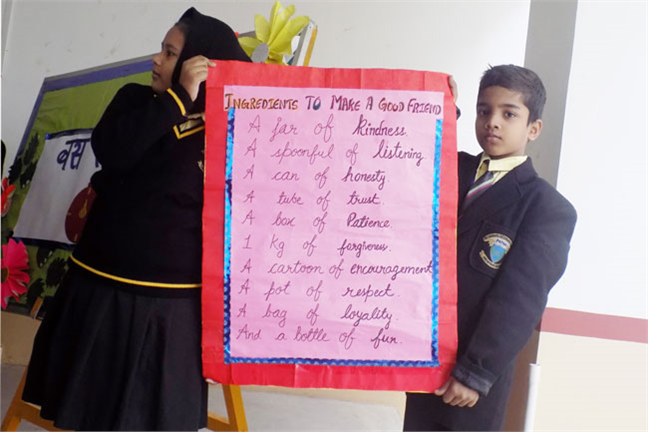 INGREDIENTS TO MAKE A GOOD FRIEND
A jar of kindness.
A spoonful of listening
A can of honesty.
A tube of trust.
A box of Patience.
1 kg of forgiveness.
A cartoon of encouragement
A pot of respect.
A bag of loyality.
And a bottle of fun.